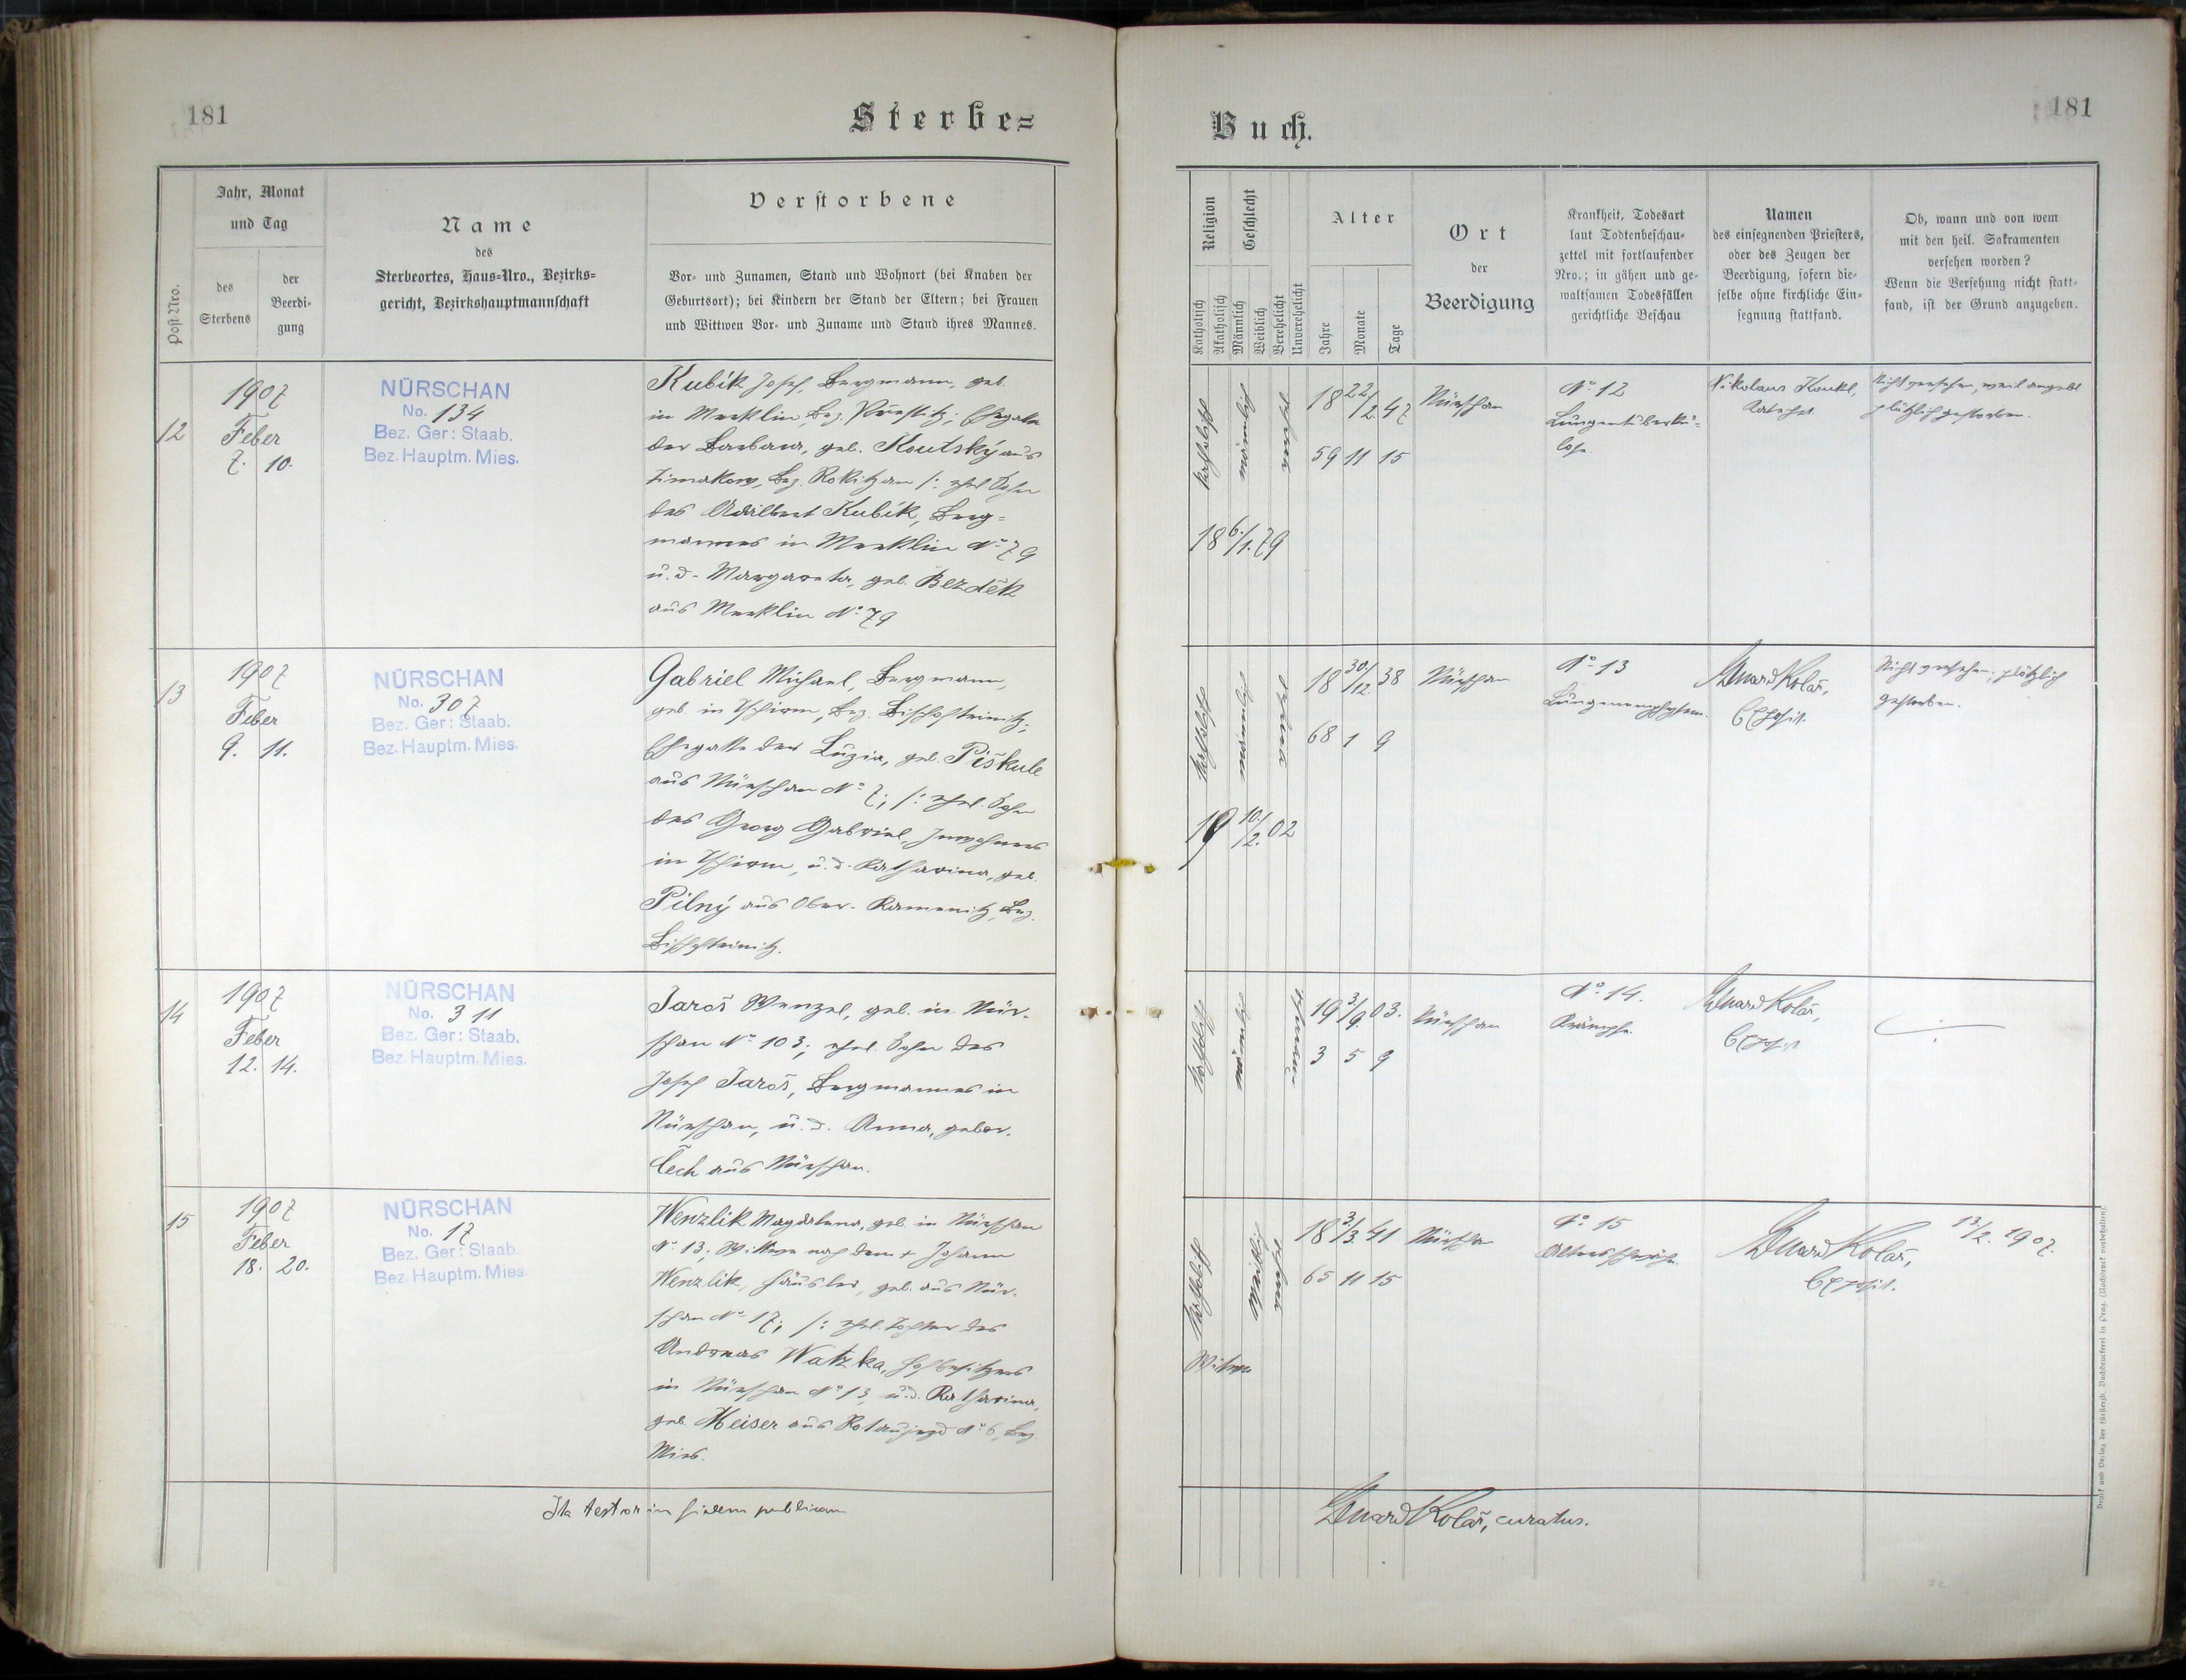 181
Sterbe=
Jahr, Monat
und Tag
Post-Nro.
des
Sterbens
der
Beerdi-
gung
Name
des
Sterbeortes, Haus=Nro., Bezirks=
gericht, Bezirkshauptmannschaft
Verstorbene
Vor- und Zunamen, Stand und Wohnort (bei Knaben der
Geburtsort); bei Kindern der Stand der Eltern; bei Frauen
und Wittwen Vor- und Zuname und Stand ihres Mannes.
12
1907
Feber
7. 10.
NÜRSCHAN
No. 134
Bez. Ger: Staab.
Bez. Hauptm. Mies.
Kubík Josef, Bergmann, geb.
in Merklin, Bez. Přestitz; Ehegatte
der Barbara, geb. Koutský aus
Bez. Rokitzan /: ehel. Sohn
des Adalbert Kubík, Berg=
mannes in Merklin No 79
u. d. Margareta, geb. Bezděk
aus Merklin No 79
13
1907
Feber
9. 11.
NÜRSCHAN
No. 307
Bez. Ger: Staab.
Bez. Hauptm. Mies.
Gabriel Michael, Bergmann,
geb. in Bez. Bischofteinitz;
Ehegatte der Luzia, geb. Piškule
aus Nürschan No 7; /: ehel. Sohn
des Georg Gabriel, Inwohners
in u. d. Katharina, geb.
Pilný aus Ober-Kamenitz, Bez.
Bischofteinitz.
14
1907
Feber
12. 14.
NÜRSCHAN
No. 311
Bez. Ger: Staab.
Bez. Hauptm. Mies.
Jaroš Wenzel, geb. in Nür-
schan No 103; ehel. Sohn des
Josef Jaroš, Bergmannes in
Nürschan, u. d. Anna, gebor.
Čech aus Nürschan.
15
1907
Feber
18. 20.
NÜRSCHAN
No. 17
Bez. Ger: Staab.
Bez. Hauptm. Mies
Wenzlik Magdalena, geb. in Nürschan
No 13; Wittwe nach dem + Johann
Wenzlik, Häusler, geb. aus Nür-
schan No 17; /: ehel. Tochter des
Andreas Watzka, Hofbesitzers
in Nürschan No 13 u. d. Katharina,
geb. Meiser aus Rotaujezd No 6, Bez.
Mies.
Ita testor in fidem publicam
Buch.
181
Religion
Geschlecht
Katholisch
Akatholisch
Männlich
Weiblich
Verehelicht
Unverehelicht
Alter
Jahre
Monate
Tage
Ort
der
Beerdigung
Krankheit, Todesart
laut Todtenbeschau-
zettel mit fortlaufender
Nro.; in gähen und ge-
waltsamen Todesfällen
gerichtliche Beschau
Namen
des einsegnenden Priesters,
oder des Zeugen der
Beerdigung, sofern die-
selbe ohne kirchliche Ein-
segnung stattfand.
Ob, wann und von wem
mit den heil. Sakramenten
versehen worden?
Wenn die Versehung nicht statt-
fand, ist der Grund anzugeben.
katholisch
männlich
18 22/2. 47
59 11 15
18 6/1. 79
Nürschan
No 12
Lungentuberku=
lose
Nikolaus Koukl,
Katechet.
Nicht versehen, weil angebl.
plötzlich gestorben.
katholisch
männlich
18 30/12. 38
68 1 9
19 10/2. 02
Nürschan
No 13
Lungenemphysem.
Eduard Kolář,
Exposit.
Nicht versehen; plötzlich
gestorben.
katholisch
männlich
19 3/9. 03.
3 5 9
Nürschan
No 14.
Krämpfe.
Eduard Kolář,
Exposit
katholisch
weiblich
Witwe
18 3/3. 41
65 11 15
Nürschan
No 15
Altersschwäche.
Eduard Kolář,
Exposit.
13/2. 1907.
Eduard Kolář, curatus.
Druck und Verlag der fürsterzb. Buchdruckerei in Prag. (Nachdruck vorbehalten).